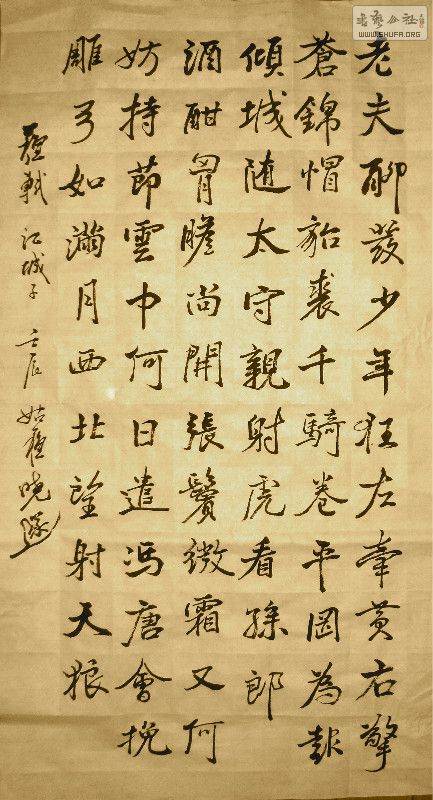 老夫聊發少年狂左牽黃右擎
蒼錦帽貂裘千騎卷平岡為報
傾城随太守親射虎看孫郎
酒酣胷膽尚開張鬢微霜又何
妨持節雲中何日遣馮唐會挽
雕弓如滿月西北望射天狼
蘇軾 江城子 壬辰 姑蘇曉
書藝公社
WWW.SHUFA.ORG